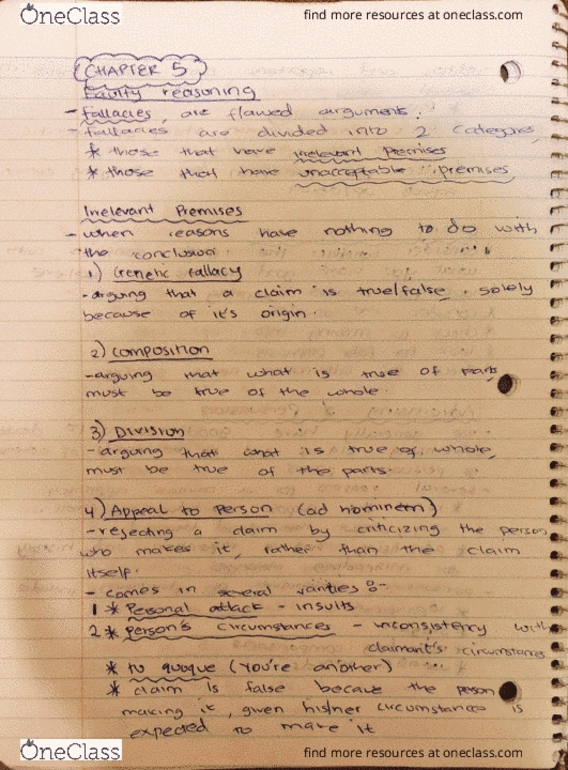 OneClass
find more resources at oneclass.com
CHAPTER 5
Faulty reasoning
- fallacies, are flawed arguments.
- fallacies are divided into 2 categories
* those that have irrelevant premises
* those that have unacceptable premises
Irrelevant Premises
- when reasons have nothing to do with
the conclusion
1) Genetic fallacy
- arguing that a claim is true/false, solely
because of it's origin.
2) composition
- arguing that what is true of parts
must be true of the whole.
3) Division
- arguing that what is true of whole,
must be true of the parts.
4) Appeal to Person (ad hominem)
- rejecting a claim by criticizing the person
who makes it, rather than the claim
itself.
- comes in several varities :-
1 * Personal attack - insults
2 * Person's circumstances - inconsistency with
claimant's circumstances
* tu quoque (you're another)
* claim is false becaue the person
making it, given his/her circumstance is
expected to make it
OneClass
find more resources at oneclass.com